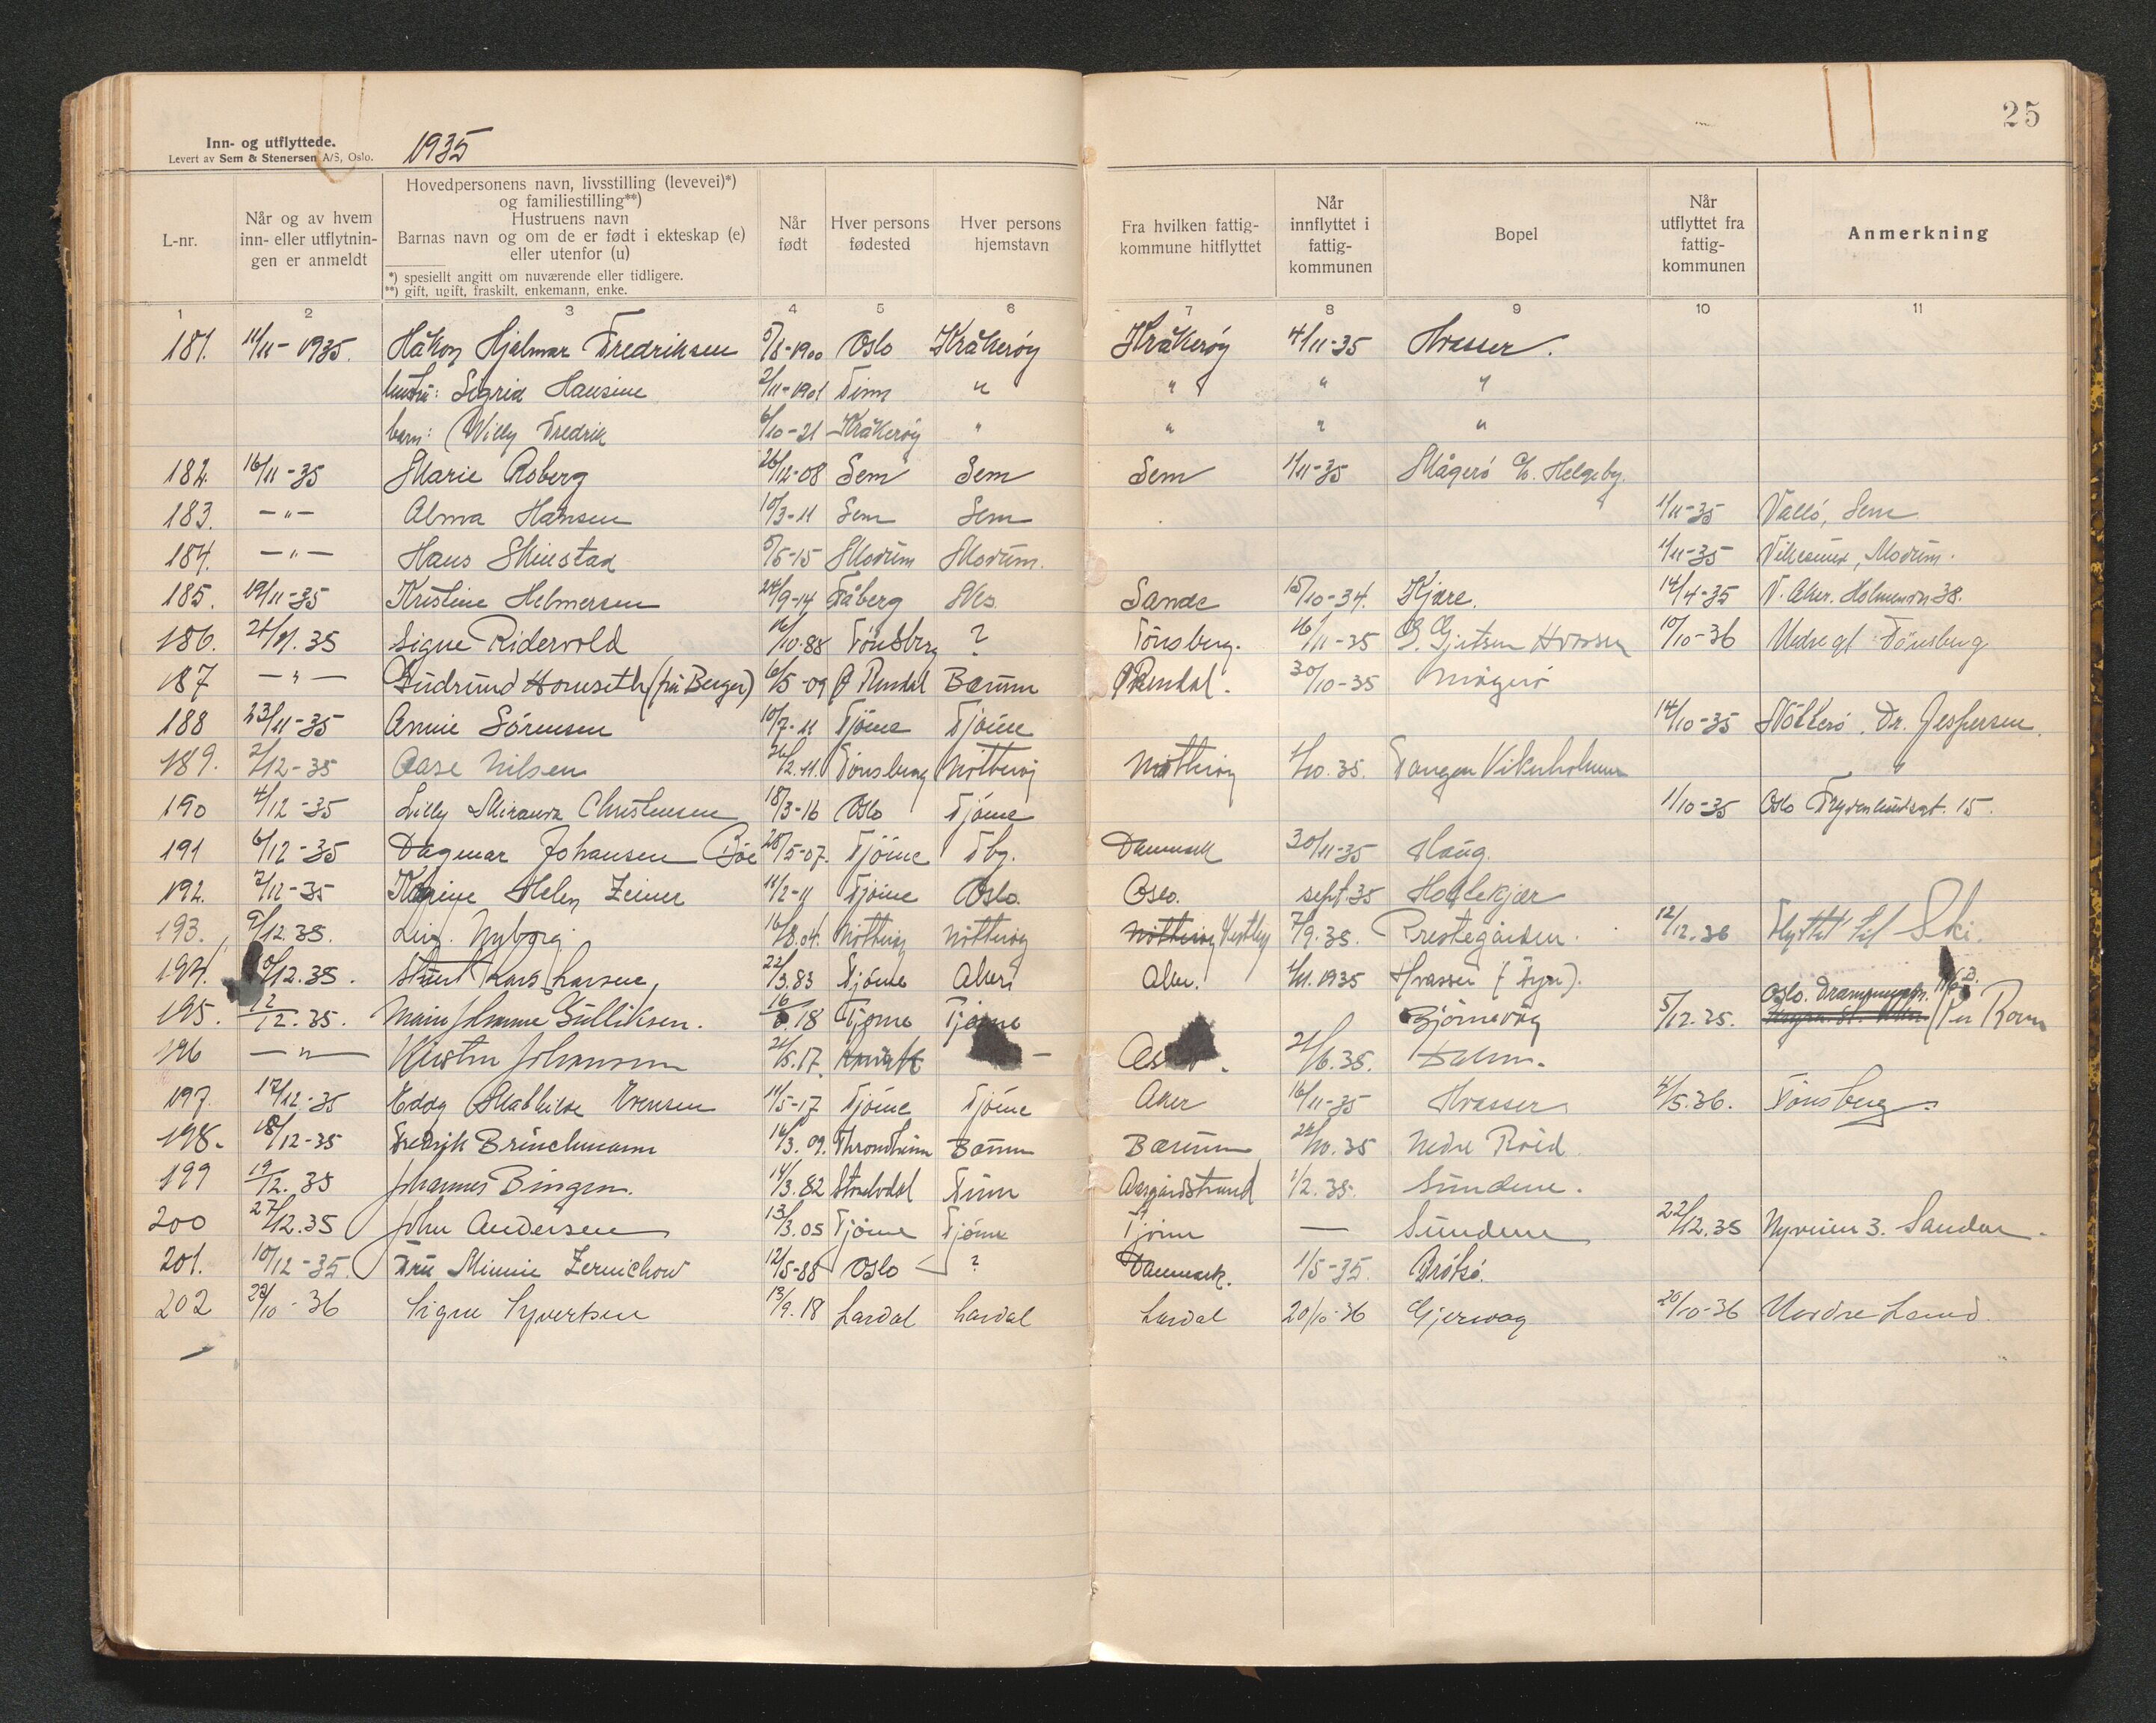 25
Inn- og utflyttede.
Levert av Sem & Stenersen A/S, Oslo.
1935
L-nr.
Når og av hvem inn- eller utflytnin-gen er anmeldt
Hovedpersonens navn, livsstilling (levevei)*)
og familiestilling**)
Hustruens navn
Barnas navn og om de er født i ekteskap (e)
eller utenfor (u)
*) spesiellt angitt om nuværende eller tidligere.
**) gift, ugift, fraskilt, enkemann, enke.
Når født
Hver persons fødested
Hver persons hjemstavn
Fra hvilken fattig-kommune hitflyttet
Når innflyttet i fattig-kommunen
Bopel
Når utflyttet fra fattig-kommunen
Anmerkning
1 2 3 4 5 6 7 8 9 10 11
181. 11/11-1935. Håkon Hjalmar Fredriksen 5/8-1900 Oslo Kråkerøy Kråkerøy 4/11-35 Hvasser.
hustru: Sigrid Hansine 2/11-1901 Tinn " " " "
barn: Willy Fredrik 6/10-21 Kråkerøy " " " "
182. 16/11-35 Marie Aasberg 26/12-08 Sem Sem Sem 1/11-35 Mågerø c/o. Helgeby.
183. -"- Alma Hansen 10/3-11 Sem Sem 1/11-35 Vallö, Sem
184. -"- Hans Skinstad 5/5-15 Modum Modum. 1/11-35 Vikesund, Modum.
185. 19/11-35 Kristine Helmersen 24/9-14 Fåberg Sande 15/10-34. Kjære. 14/4-35 V. Aker. 38.
186. 21/11.35 Signe Ridervold 16/10.88 Tönsberg ? Tönsberg. 16/11-35 G. Gjertsen Hvasser 10/10-36 Tönsberg
187 -"- Gudrund Homseth (fru Berger) 6/5-09 Ø Rendal Bærum Ø Rendal. 30/10-35 Mågerö
188 23/11-35 Annie Sörensen 10/7-11 Tjöme Tjöme 14/10-35 Nötterö. Dr. Jespersen.
189. 2/12-35 Aase Nilsen 26/2.11. Tönsberg Nötteröy Nötteröy 1/10.35. Tangen Vikerholmen
190 4/12-35 Lilly Miranda Christensen 18/3-16 Oslo Tjöme 1/10-35 Oslo Frydenlundsgt. 15.
191 6/12-35 Dagmar Johansen Böe 28/5-07. Tjöme Tbg. Danmark 30/11-35 Haug.
192. 7/12-35 Helen Zeiner 11/2-11 Tjöme Oslo. Oslo. sept. 35 Hollekjær
193. 9/12.35. Nyborg 16/8.04. Nötteröy Nötteröy Nötteröy Vestby 7/9.35. Prestegården. 12/12.36 Flyttet til Ski.
194. 10/12.35. Lars Larsen, 22/3.83 Tjöme Aker Aker. 1/11.1935 Hvasser (Fyr).
195. 2/12.35. Johanne Gulliksen. 18 Tjöme Tjöme Bjørnevåg 5/12.35. Oslo.
196 -"- Kirstin Johansen 21/5.17. 21/6.35.
197. 17/12-35 Eddy Mathilde Evensen 11/5-17 Tjöme Tjöme Aker 16/11-35 Hvasser 4/5.36. Tönsberg.
198. 18/12-35 Fredrik Brinchmann 14/3.09. Throndheim Bærum Bærum 24/10.35 Nedre Röed
199 19/12.35 Johannes Bingen. 14/3.82 Aasgaardstrand 1/2.35. Sundene.
200 27/12.35 John Andersen 13/3.05 Tjöme Tjöme Tjöme — Sundene 22/12.35 3. Sandar.
201. 10/12-35. Fru Minnie Zernichow 12/5-88 Oslo ? Danmark. 1/5-35. Brötsö.
202 28/10-36 Signe Syvertsen 13/9.18 Lardal Lardal Lardal 20/10-36 Gjervaag 20/10-36 Nordre Land.